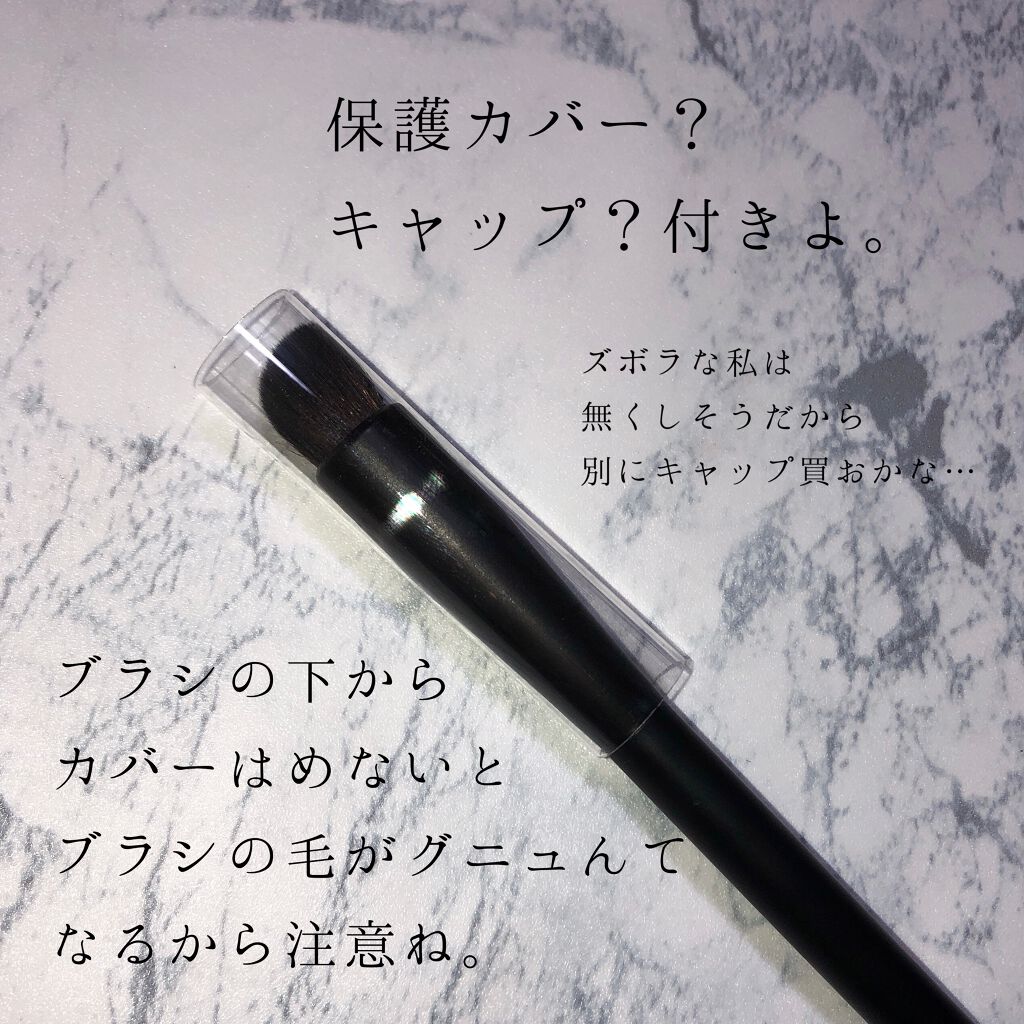 保護カバー？
キャップ？付きよ。
ズボラな私は
無くしそうだから
別にキャップ買おかな…
ブラシの下から
カバーはめないと
ブラシの毛がグニュんて
なるから注意ね。